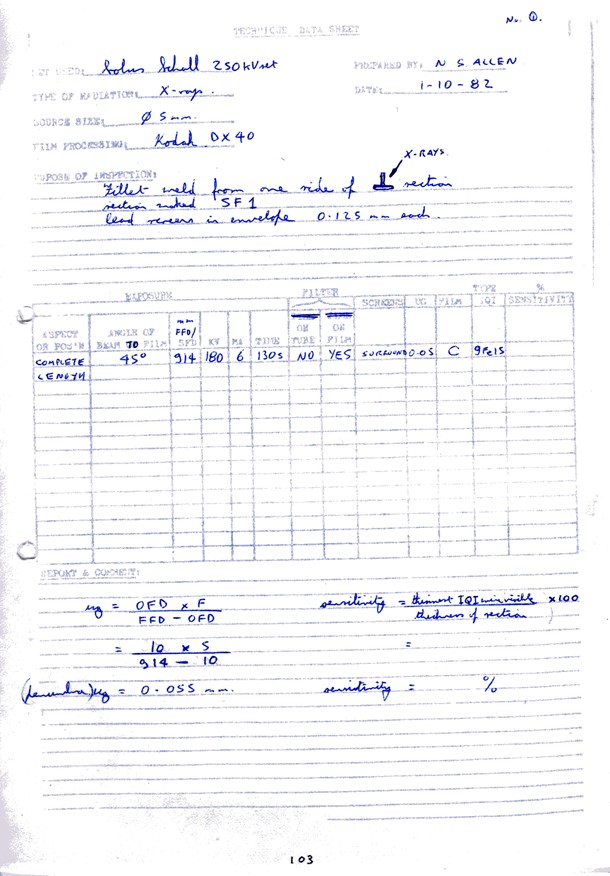 No. ①.
TECHNIQUE DATA SHEET
SET USED: Solus Schall 250 kV set PREPARED BY: N S. ALLEN
TYPE OF RADIATION: X-rays. DATE: 1-10-82
SOURCE SIZE: Ø 5 mm.
FILM PROCESSING: Kodak DX 40
X-RAYS.
PUPOSE OF INSPECTION:
Fillet weld from one side of section
section marked SF1
lead screens in envelope 0.125 mm each.
EXPOSURE FILTER TYPE %
SCREENS UG FILM IQI SENSITIVITY
ASPECT OR POS'N ANGLE OF BEAM TO FILM mm FFD/ SFD KV MA TIME ON TUBE ON FILM
COMPLETE 45° 914 180 6 130s NO YES SURROUND 0.05 C 9Fe15
LENGTH
REPORT & COMMENT:
ug = OFD x F / FFD - OFD sensitivity = thinnest IQI wire visible / thickness of section x 100
= 10 x 5 / 914 - 10 =
ug = 0.055 mm. sensitivity = %
103